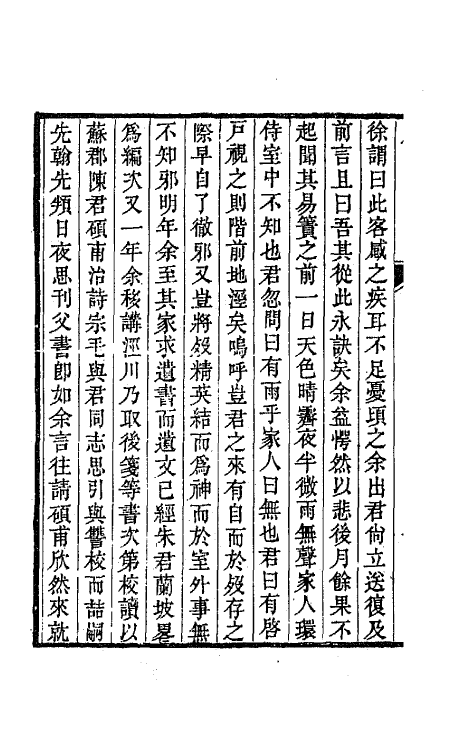 徐謂曰此客感之疾耳不足憂頃之余出君尙立送復及
前言且曰吾其從此永訣矣余益愕然以悲後月餘果不
起聞其易簀之前一日天色晴霽夜半微雨無聲家人環
侍室中不知也君忽問曰有雨乎家人曰無也君曰有啓
戸視之則階前地溼矣嗚呼豈君之來有自而於歿存之
際早自了徹邪又豈將歿精英結而爲神而於室外事無
不知邪明年余至其家求遺書而遺文已經朱君蘭坡畧
爲編次又一年余移講涇川乃取後箋等書次第校讀以
蘇郡陳君碩甫治詩宗毛與君同志思引與讐校而喆嗣
先翰先頖日夜思刊父書卽如余言往請碩甫欣然來就